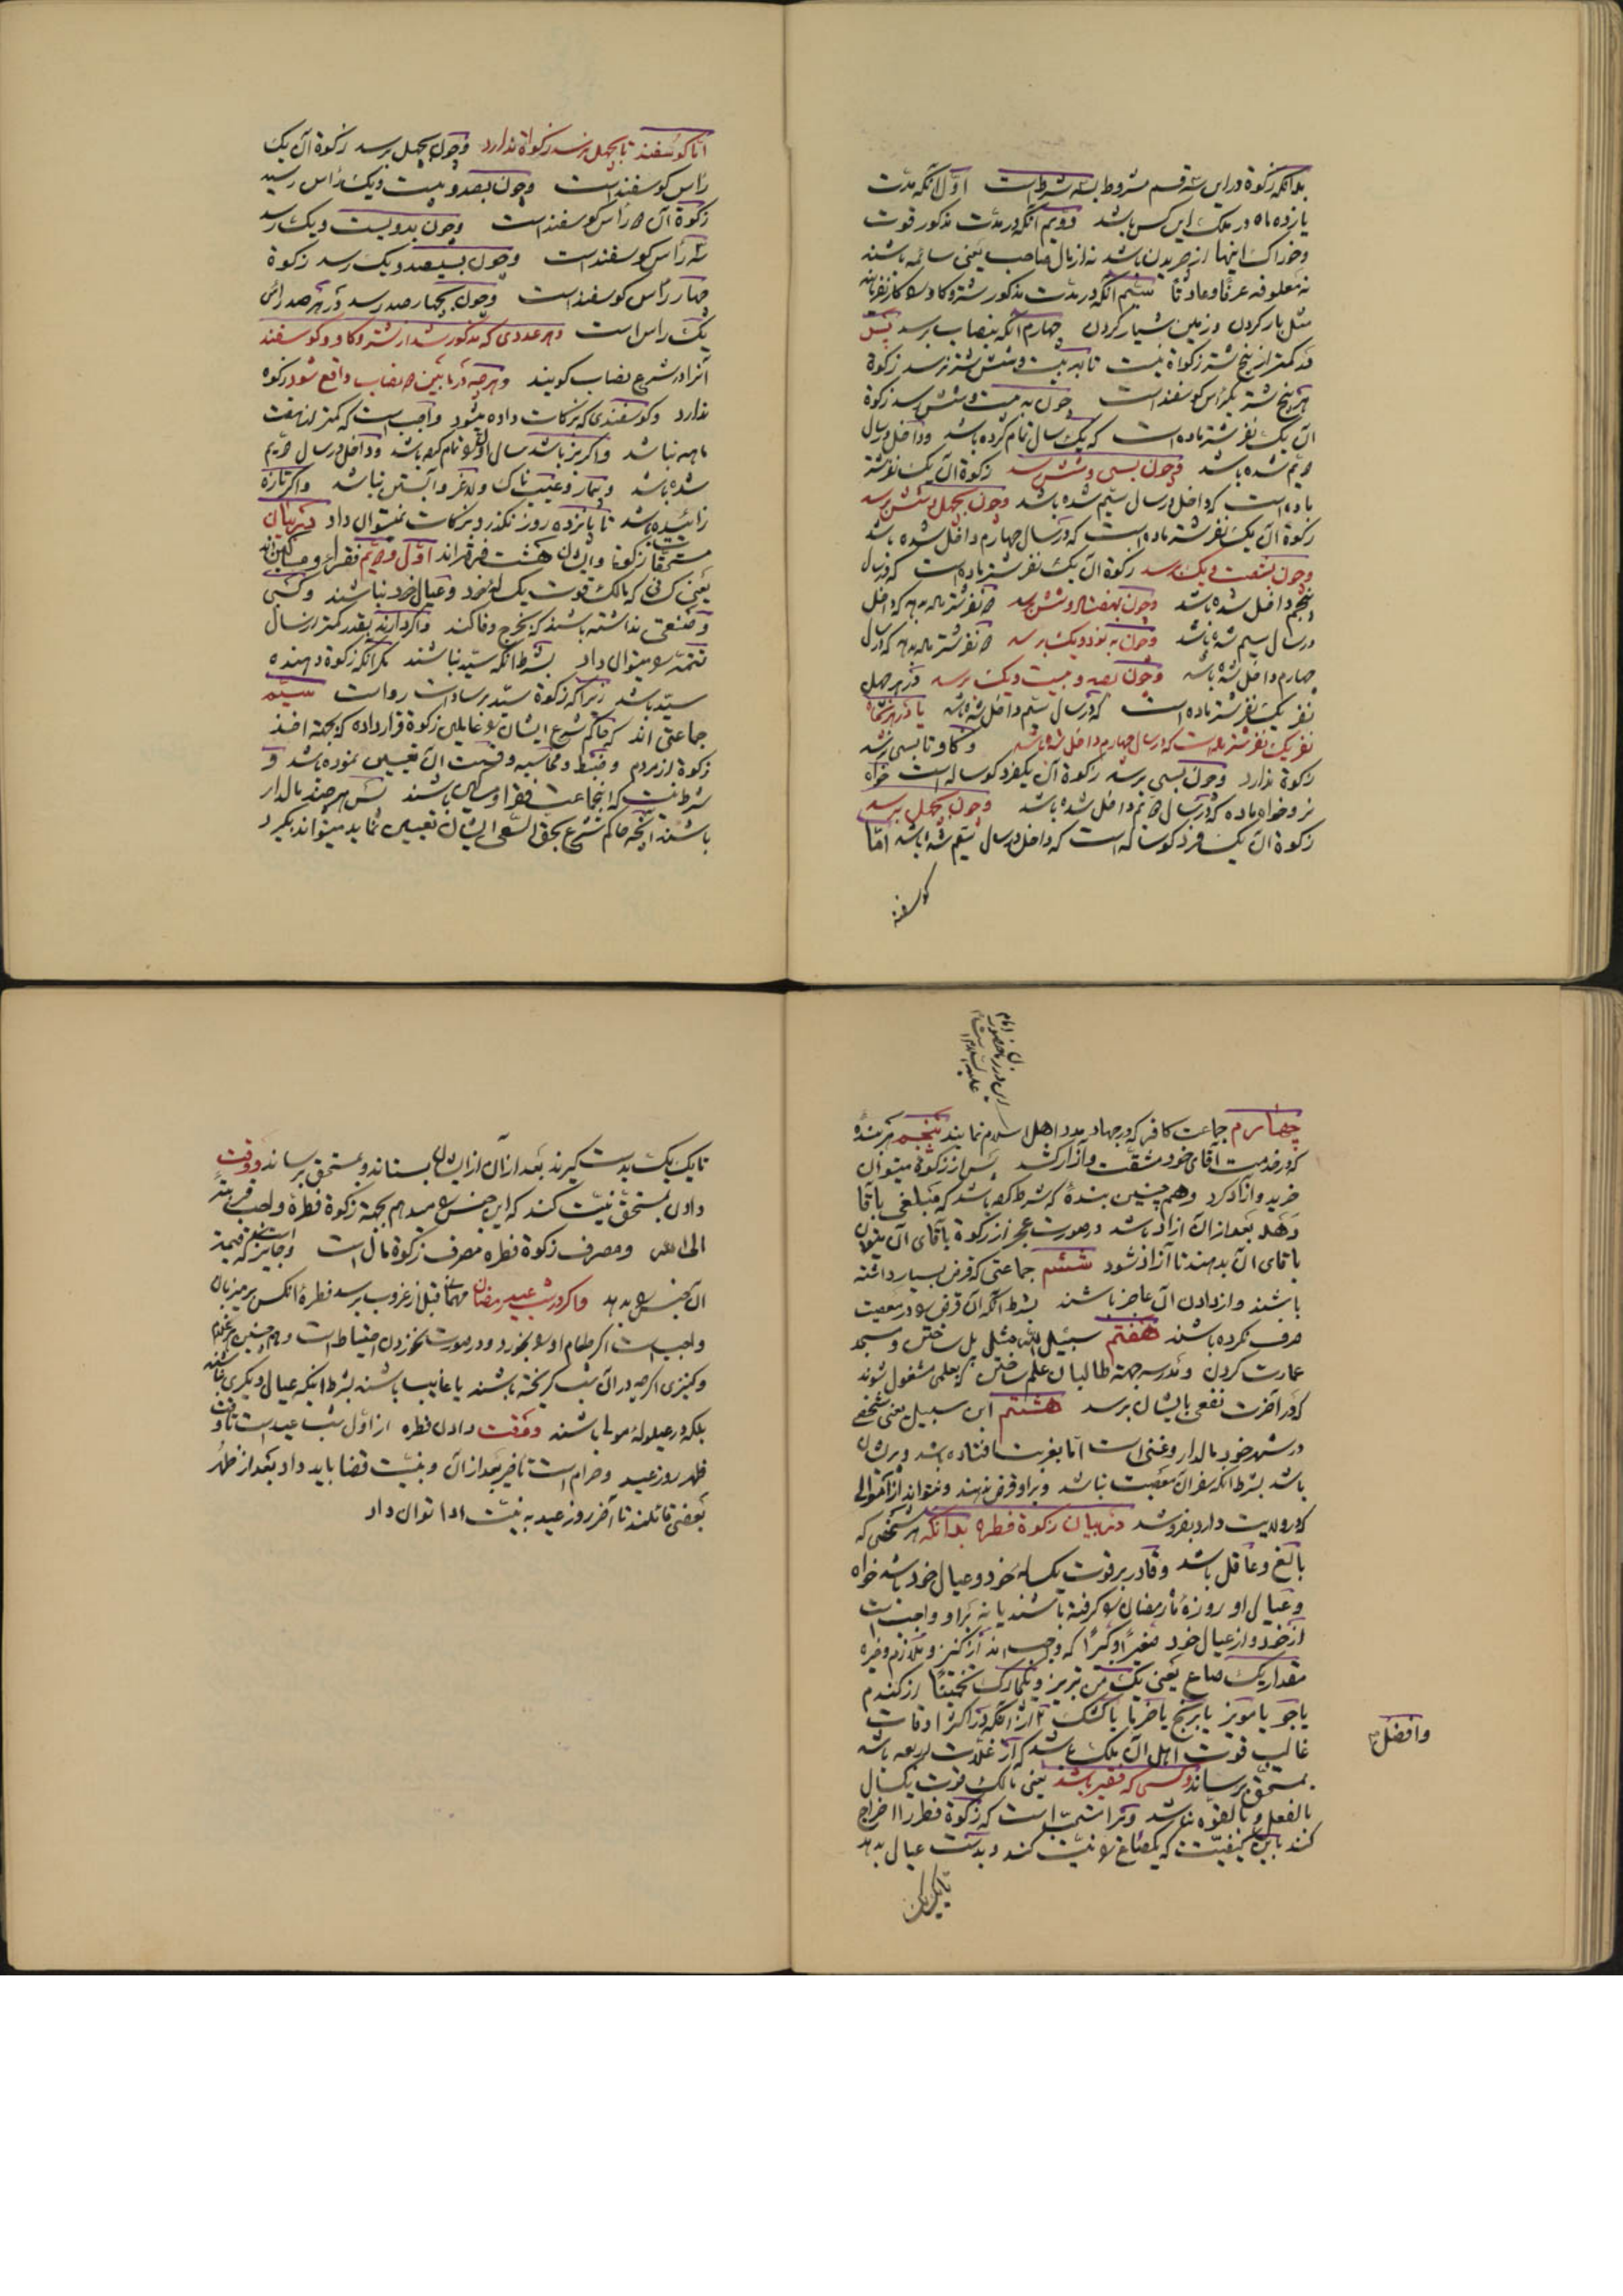 بدانکه زکوة در این سه قسم مشروط بسه شرط است اوّل آنکه مدّت
یازده ماه در ملک این کس باشد دویم آنکه در مدّت مذکور قوت
وخوراک اینها از چریدن باشد نه از مال صاحب یعنی سائمه باشند
نه معلوفه عرفًا وعادتًا سیّم آنکه در مدّت مذکور شتر و کاو
مثل بار کردن و زمین شیار کردن چهارم آنکه بنصاب برسد پس
در کمتر از پنج شتر زکواة نیست تا به بیست وشش شتر نرسد زکوة
هر پنج شتر یکرأس کوسفند است چون به بیست وشش رسد زکوة
آن یک نفر شتر ماده است که یک سال تمام کرده باشد وداخل در سال
دویّم شده باشد وچون بسی وشش رسد زکوة آن یک نفر شتر
ماده است که داخل در سال سیّم شده باشد وچون بچهل وشش رسد
زکوة آن یک نفر شتر ماده است که در سال چهارم داخل شده باشد
وچون بشصت ویک رسد زکوة آن یک نفر شتر ماده است که در سال
پنجم داخل شده باشد وچون بهفتاد وشش رسد نفر شتر ماده بدهد که داخل
در سال سیم شده باشد وچون به نود ویک برسد نفر شتر ماده بدهد که در سال
چهارم داخل شده باشد وچون بصد و بیست ویک برسد در هر چهل
نفر یک نفر شتر ماده است که در سال سیّم داخل شده باشد یا در هر پنجاه
نفر یک نفر شتر ماده است که در سال چهارم داخل شده باشد وکاو تا بسی نرسد
زکوة ندارد وچون بسی برسد زکوة آن یکفرد کوساله است خواه
نر وخواه ماده که در سال دویم داخل شده باشد وچون بچهل برسد
زکوة آن یک فرد کوساله است که داخل در سال سیّم شده باشد امّا
کوسفند
امّا کوسفند تا بچهل نرسد زکواة ندارد وچون بچهل برسد زکوة آن یک
رأس کوسفند است وچون بصد و بیست ویک رأس رسید
زکوة آن رأس کوسفند است وچون بدویست ویک رسد
سه رأس کوسفند است وچون بسیصد ویک رسد زکوة
چهار رأس کوسفند است وچون بچهار صد رسد در هر صد رأس
یک رأس است وهر عددی که مذکور شد از شتر و کاو و کوسفند
آنرا در شرع نصاب کویند وهر چه در مابین نصاب واقع شود زکوة
ندارد وکوسفندی که بزکات داده میشود واجب است که کمتر از هفت
ماهه نباشد واکر بز باشد سال او تمام باشد وداخل در سال دویّم
شده باشد وبیمار وعیب ناک ولاغر وآبستن نباشد واکر تازه
زائیده باشد تا پانزده روز نکذرد بزکات نمیتوان داد در بیان
مستحقّان زکوة وایشان هشت فرقه اند اوّل ودویّم فقراء ومساکین اند
یعنی کسانی که مالک قوت یک ساله خود وعیال خود نباشند وکسی
وصنعتی نداشته باشند که بخرج وفا کند واکر دارند بقدر کمتر از سال
تتمّه میتوان داد بشرط آنکه سیّد نباشند مکر آنکه زکوة دهنده
سیّد باشد زیرا که زکوة سیّد بر سادات رواست سیّم
جماعتی اند که حاکم شرع ایشان عاملین زکوة قرار داده که بجهة اخذ
زکوة از مردم وضبط ومحاسبه وقسمت آن تعیین نموده باشد و
شرط نیست که اینجماعت فقرا ومساکین باشند پس هر چند مالدار
باشند آنچه حاکم شرع بحق السّعی ایشان تعیین نماید میتواند بکیرد
این در زمان حضور امام
علیه السلام است
چهارم جماعت کافر که در جهاد مدد اهل اسلام نمایند پنجم هر بنده
که در خدمت آقای خود مشقّت وآزار کشد پس از زکوة میتوان
خرید وآزاد کرد وهم چنین بندهٔ که شرط باشد که مبلغی باقا
دهد بعد از آن آزاد باشد در صورت عجز از زکوة باقای آن میتوان
باقای آن بدهند تا آزاد شود ششم جماعتی که قرض بسیار داشته
باشند واز دادن آن عاجز باشند بشرط آنکه آن قرض در معصیت
صرف نکرده باشند هفتم سبیل الله مثل پل ساختن و مسجد
عمارت کردن ومدرسه جهة طالبان علم ساختن که بعلمی مشغول شوند
که در آخرت نفعی بایشان برسد هشتم ابن سبیل یعنی شخصی
در شهر خود مالدار وغنی است امّا بغربت افتاده باشد وپریشان
باشد بشرط آنکه سفر آن معصیت نباشد وبر او قرض ندهند ونتواند از اموالی
که در ولایت دارد بفروشد در بیان زکوة فطره بدانکه هر شخصی که
بالغ وعاقل باشد وقادر بر قوت یکساله خود وعیال خود باشد خواه
وعیال او روزهٔ ماه رمضان کرفته باشند یا نه بر او واجبست
از خود واز عیال خود صغیرًا وکبیرًا که واجب اند از کنیز وملازم وغیره
مقدار یک صاع یعنی یک من تبریز تخمینًا از کندم
یا جو یا مویز یا برنج یا خرما یا کشک آنکه در اکثر اوقات
غالب قوت اهل آن ملک باشد که از غلّات اربعه باشد
وافضل
بمستحق برساند وکسی که فقیر باشد یعنی مالک قوت یکسال
بالفعل و بالقوّه نباشد ورا سنّت است که زکوة فطر را اخراج
کند باین کیفیّت که یکصاع نیّت کند وبدست عیال بدهد
تا یک یک
تا یک یک بدست کیرند بعد از آن از ایشان بستاند وبمستحق برساند ووقت
دادن بمستحق نیّت کند که این جنس میدهم بجهة زکوة فطرهٔ واجب قربة
الی الله ومصرف زکوة فطره مصرف زکوة مال است وجایز است که قیمة
آن جنس بدهد واکر در شب عید رمضان مهمان قبل از غروب برسد فطرهٔ آنکس بر میزبان
واجب است اکر طعام او بخورد ودر صورت نخوردن احتیاط است وهم چنین غلام
وکنیزی اکر چه در آن شب کریخته باشند یا غایب باشند بشرط آنکه عیال دیکری نباشند
بلکه در عیلولهٔ مولا باشند ووقت دادن فطره از اوّل شب عید است تا وقت
ظهر روز عید وحرام است تاخیر بعد از آن وبنیّت قضا باید داد بعد از ظهر
بعضی قائلند تا آخر روز عید به نیّت ادا توان داد